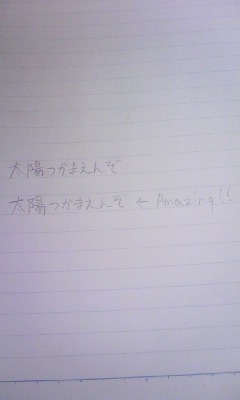 太陽つかまえんぞ
太陽つかまえんぞ ← Amazing!!